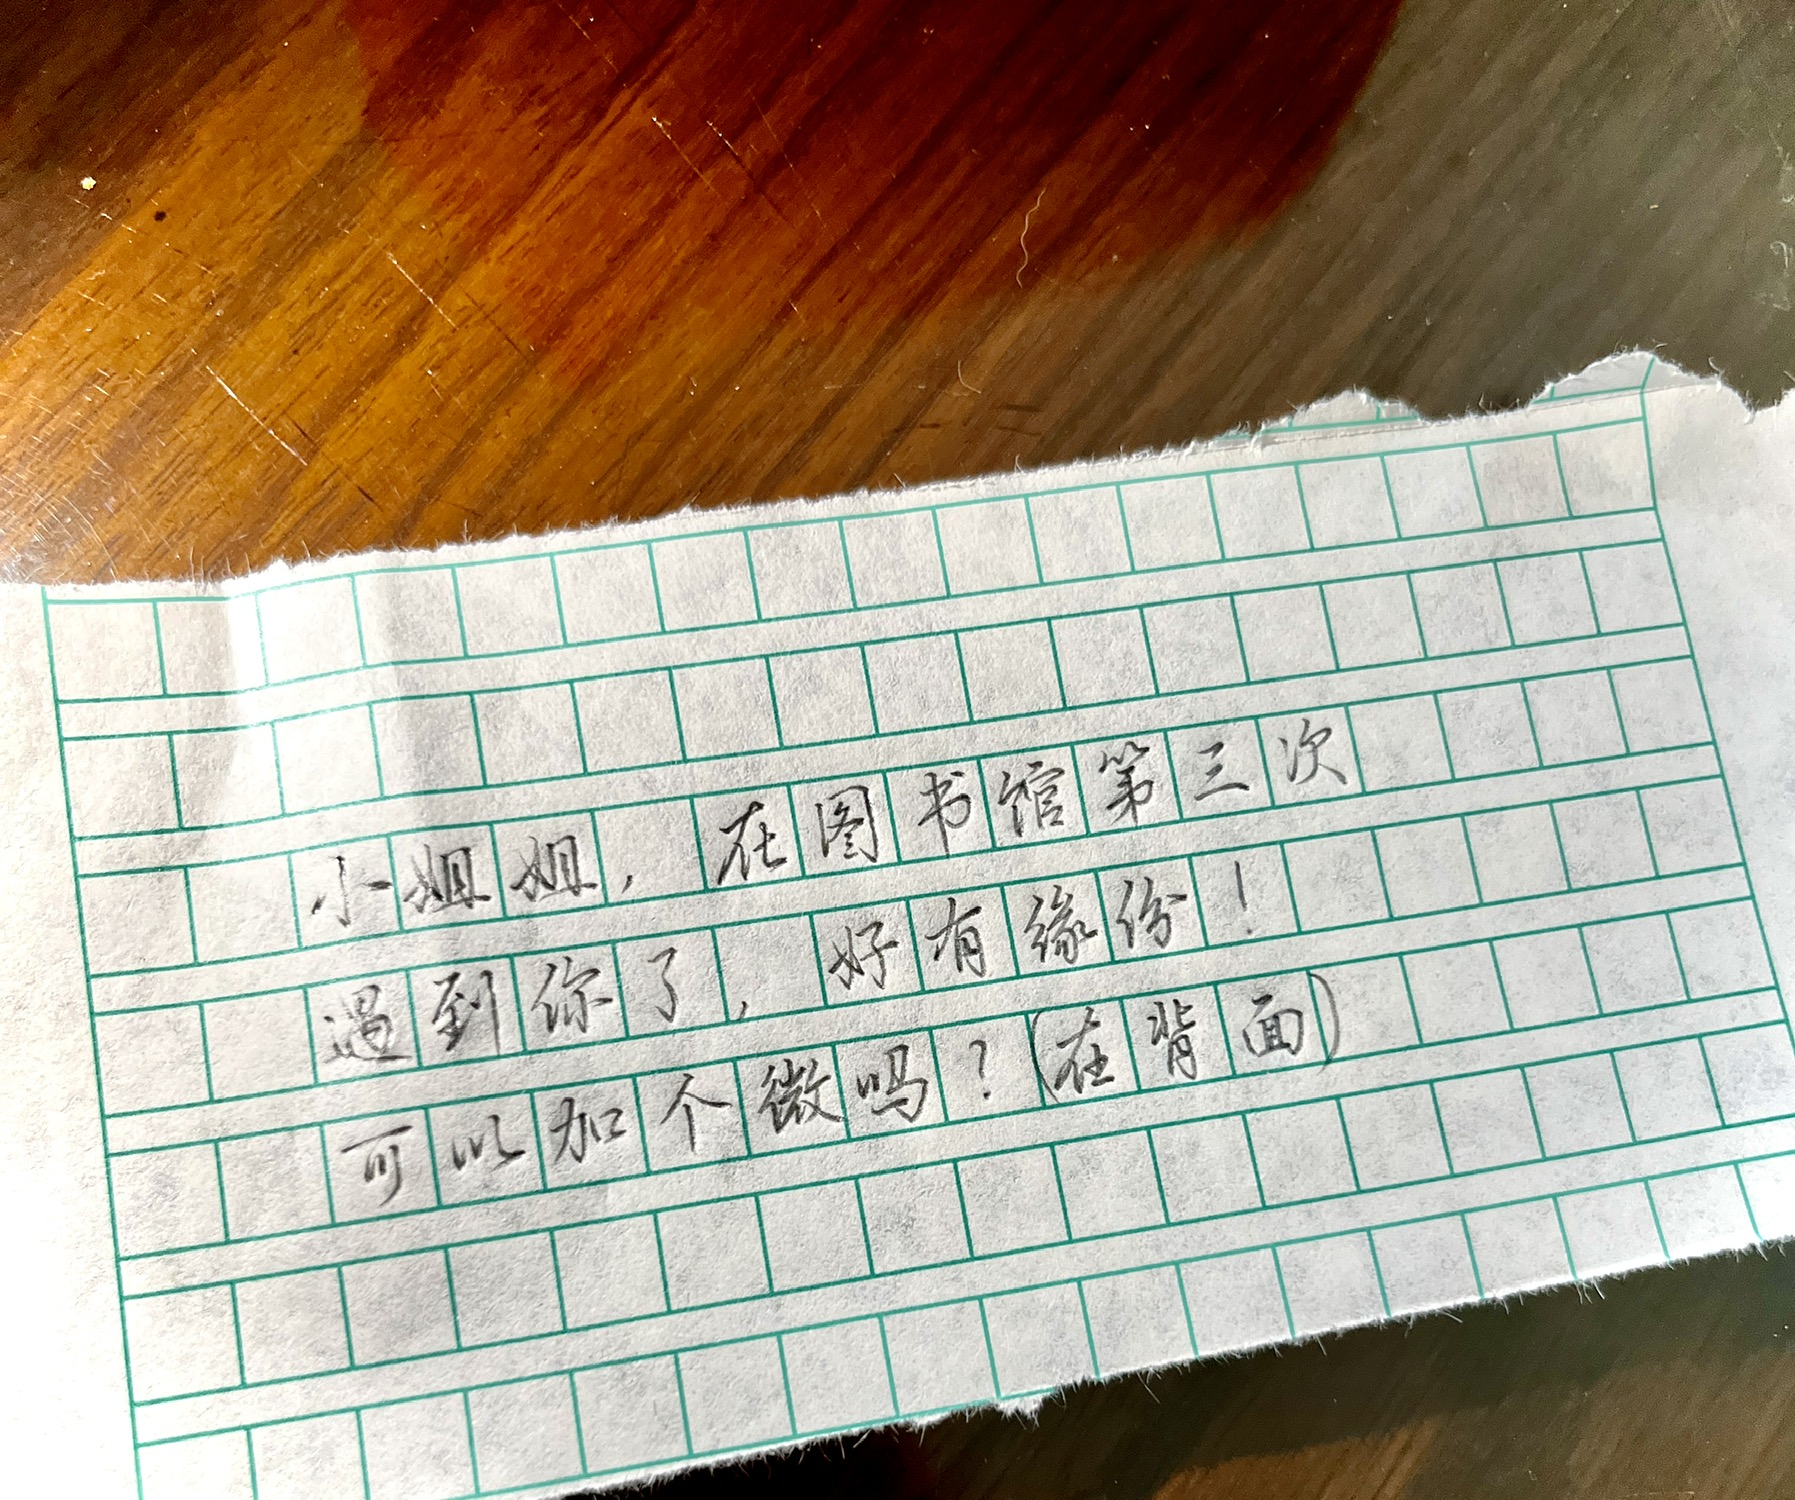 小姐姐，在图书馆第三次
遇到你了，好有缘份！
可以加个微吗？(在背面)